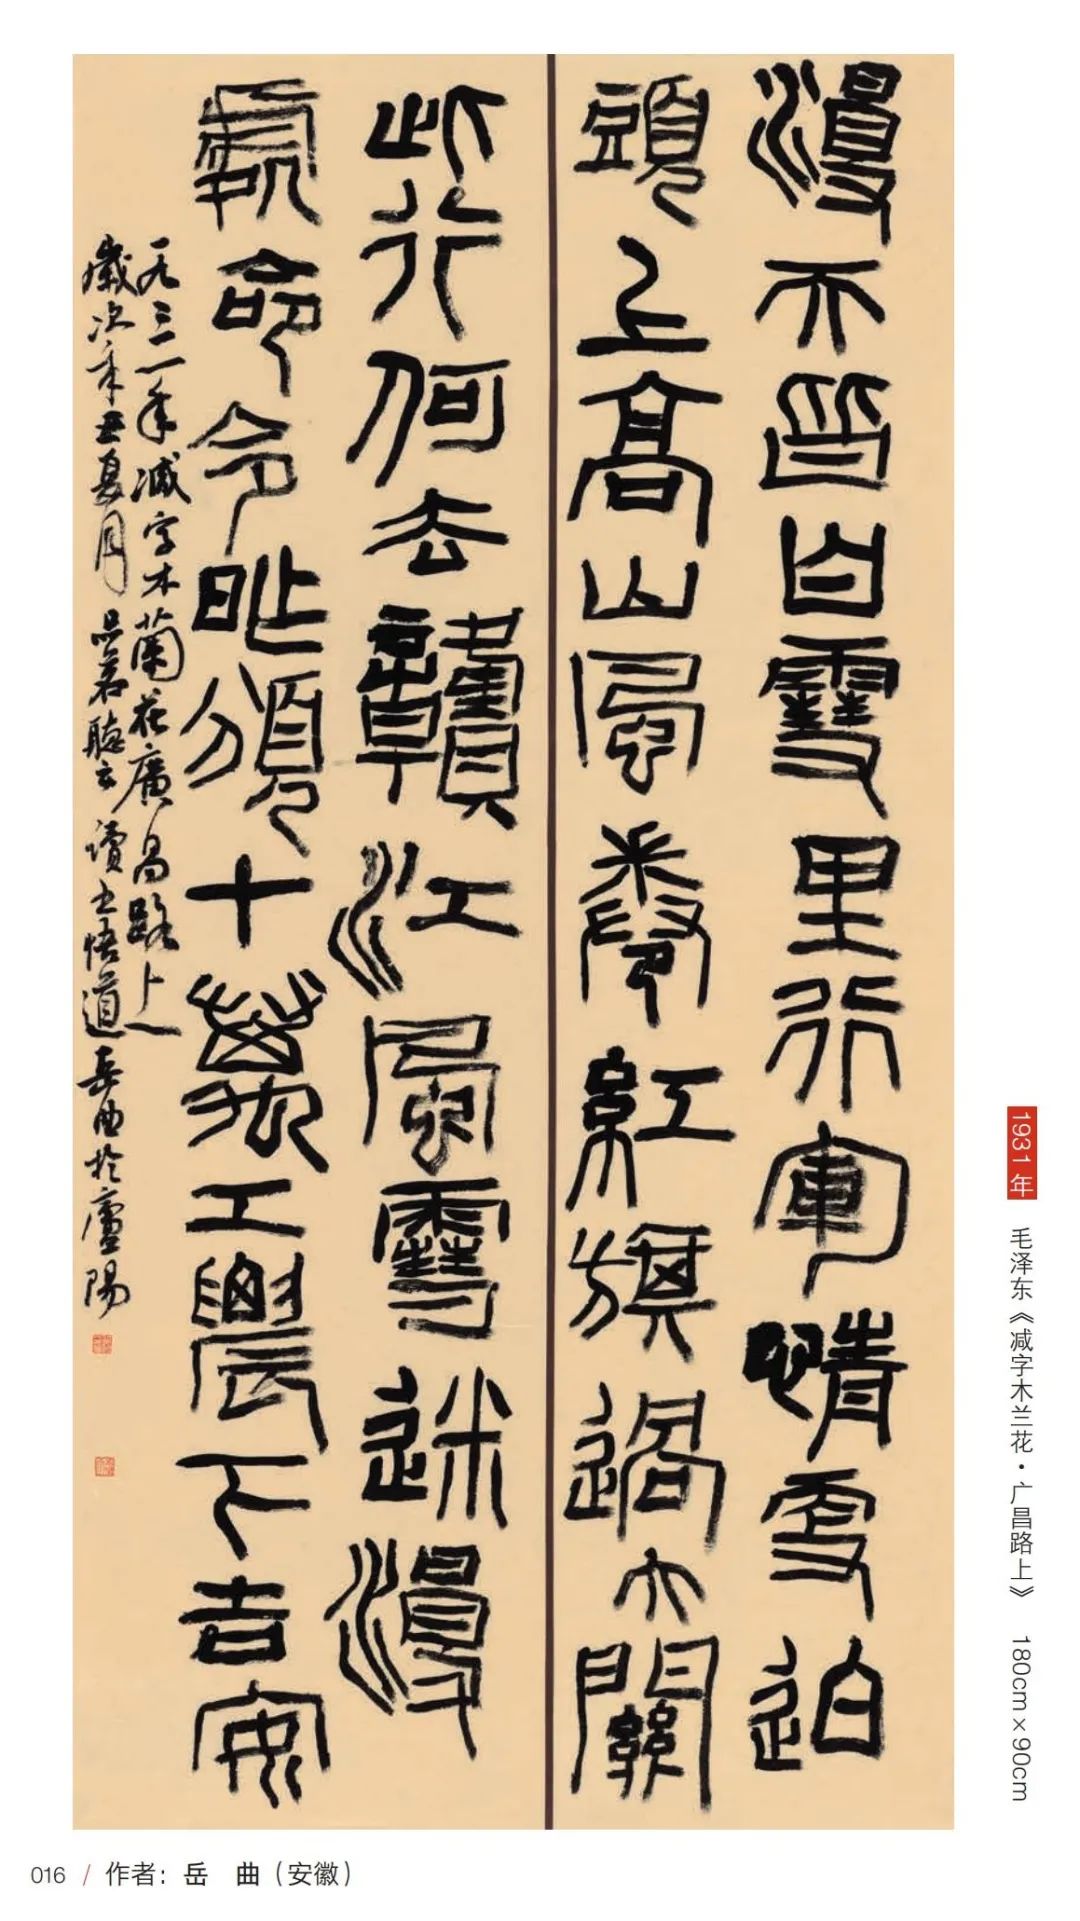 漫天皆白雪里行軍情更迫
頭上高山風卷紅旗過大關
此行何去贛江風雪迷漫
處命令昨頒十萬工農下吉安
一九三一年減字木蘭花廣昌路上
歲次辛丑夏月品茗聽云讀书悟道岳曲於廬陽
1931年 毛泽东《减字木兰花·广昌路上》 180cm×90cm
016 / 作者：岳 曲（安徽）